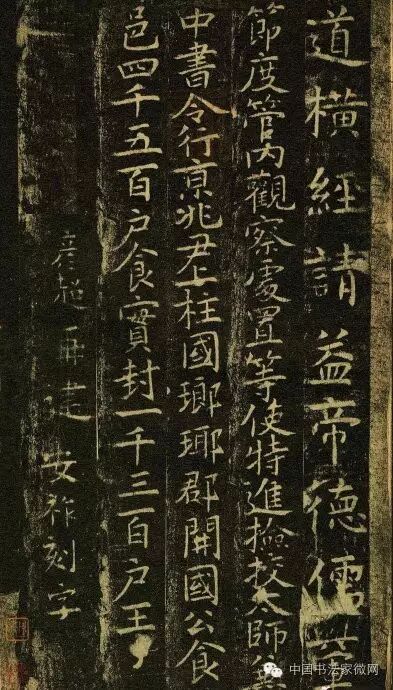 道橫經請益帝德儒堂
節度管內觀察處置等使特進撿挍太師兼
中書令行京兆尹上柱國瑯瑘郡開國公食
邑四千五百戶食實封一千三百戶王
彥超再建 安祚刻字
中国书法家微网